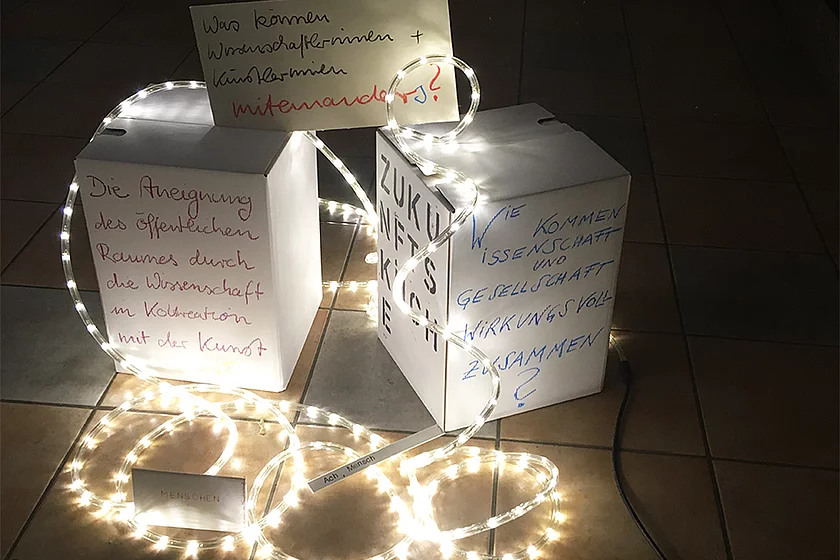 Was können
Wissenschaftlerinnen +
Künstlerinnen
miteinander?
Die Aneignung
des öffentlichen
Raumes durch
die Wissenschaft
in Kokreation
mit der Kunst
ZUKU
NFTS
KÜCH
E
WIE KOMMEN
WISSENSCHAFT
UND
GESELLSCHAFT
WIRKUNGSVOLL
ZUSAMMEN
?
Ach, Mensch
MENSCHEN